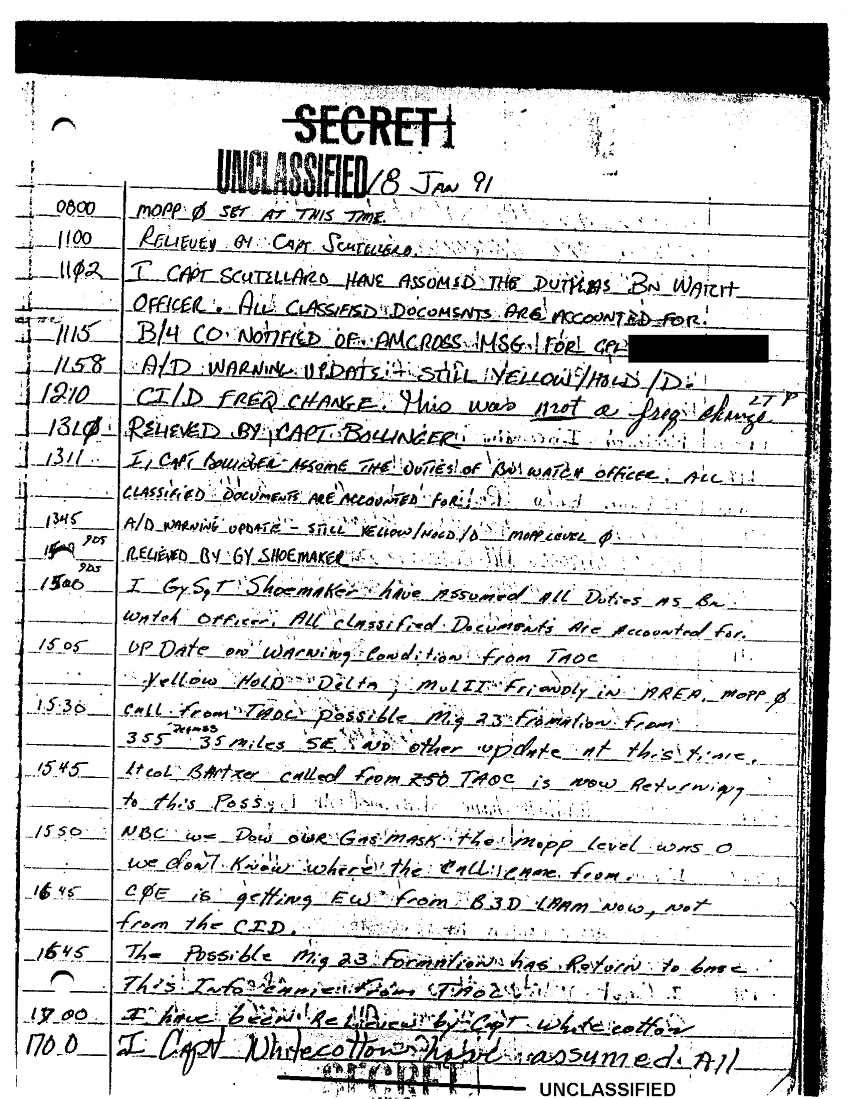 SECRET
UNCLASSIFIED 18 JAN 91
0800 MOPP Ø SET AT THIS TIME
1100 RELIEVED BY CAPT SCUTELLARO.
11Ø2 I CAPT SCUTELLARO HAVE ASSUMED THE DUTIES AS BN WATCH
OFFICER. ALL CLASSIFIED DOCUMENTS ARE ACCOUNTED FOR.
1115 B/4 CO NOTIFIED OF AMCROSS MSG FOR CPL
1158 A/D WARNING UPDATE - STILL YELLOW/HOLD/D.
1210 CI/D FREQ CHANGE. This was not a freq change
131Ø RELIEVED BY CAPT BOLLINGER
1311 I, CAPT BOLLINGER ASSUME THE DUTIES OF BN WATCH OFFICER. ALL
CLASSIFIED DOCUMENTS ARE ACCOUNTED FOR.
1345 A/D WARNING UPDATE - STILL YELLOW/HOLD/D MOPP LEVEL Ø
RELIEVED BY GY SHOEMAKER
1500 I GySgT Shoemaker have Assumed All Duties as Bn
Watch Officer. All classified Documents Are Accounted for.
1505 UP Date on Warning Condition from TAOC
Yellow Hold Delta; MuLIT Friendly in AREA. MOPP Ø
1530 call from TAOC possible Mig 23 Fromation from
355 Degrees 35 miles SE NO other update at this time.
1545 Ltcol BArtzer called from TAOC is now Returning
to this Poss.
1550 NBC we Dow our Gas mask the mopp level was 0
we don't Know where the call came from.
1645 CØE is getting EW from B 3D LAAM Now, not
from the CID.
1645 The Possible Mig 23 Formation has Return to base
This Info came from TAOC
1700 I have been Relieved by Capt Whitecotton
1700 I Capt Whitecotton have assumed All
SECRET UNCLASSIFIED